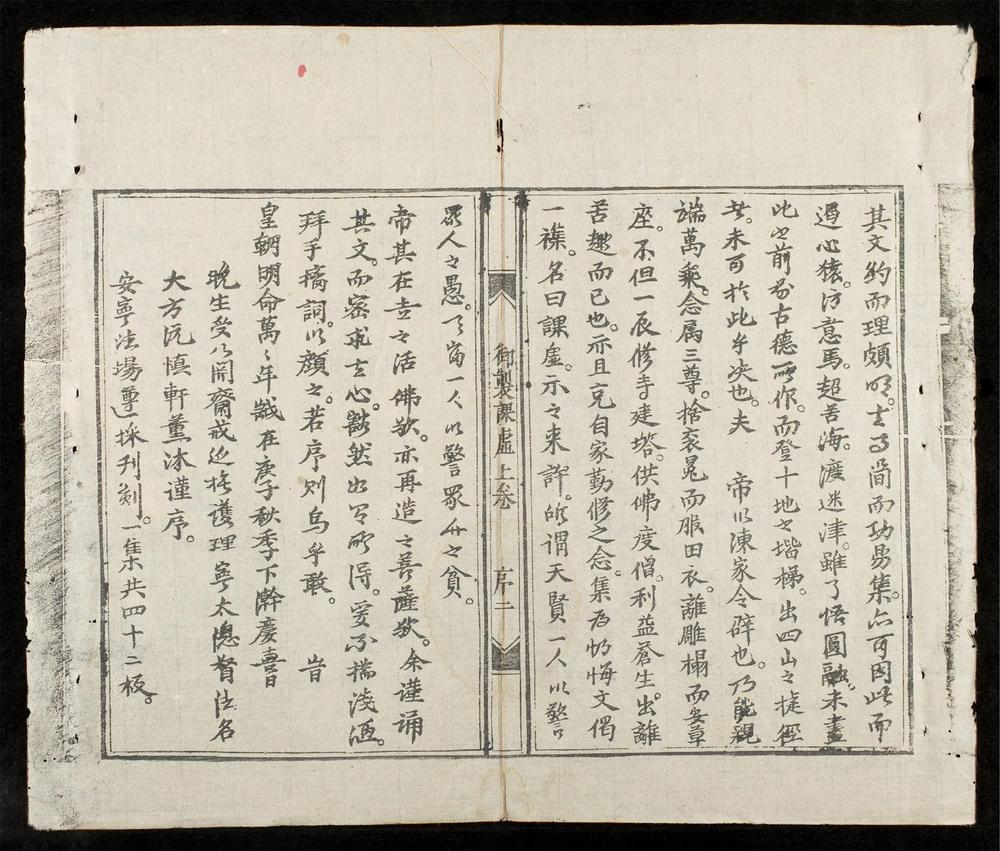 其文約而理頗明。其事簡而功易集。亦可因此而
遏心猿。彷意馬。超苦海。渡迷津。雖了悟圓融。未盡
此之前前古德所作。而登十地之堦梯。出四山之捷徑
者。未可於此乎决也。夫 帝以凍家令辟也。乃能視
端萬乘。念属三尊。捨衮冕而服田衣。離雕榻而安草
座。不但一辰修寺建塔。供佛度僧。利益蒼生。出離
苦趣而已也。亦且充自家勤修之念。集為懺悔文偈
一襍。名曰課虛。示之来許。所謂天賢一人以警
眾人之愚。天富一人以警眾人之貧。
帝其在古之活佛歟。亦再造之菩薩歟。余謹誦
其文。而密求玄心。豁然如有所得。妄不揣淺陋。
拜手摛詞。以顔之。若序則烏乎敢。 旹
皇朝明命萬萬年歲在庚子秋季下澣慶喜日
晚生受八関齋戒巡撫護理寧太總督法名
大方阮慎軒薰沐謹序。
安寧法場遵採刊刻。一集共四十二板。
御製課虛上卷 序二